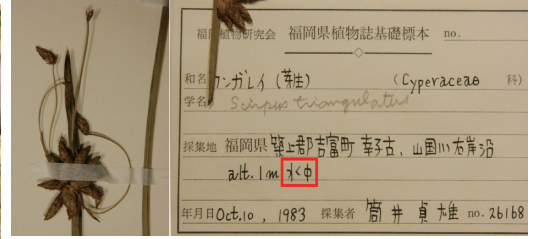 福岡植物研究会 福岡県植物誌基礎標本 no.
和名 カンガレイ (芽生) (Cyperaceae 科)
学名 Scirpus triangulatus
採集地 福岡県 築上郡吉富町 幸子古、山国川左岸沿
alt. 1m 水中
年月日 Oct. 10, 1983 採集者 筒井貞雄 no. 26168